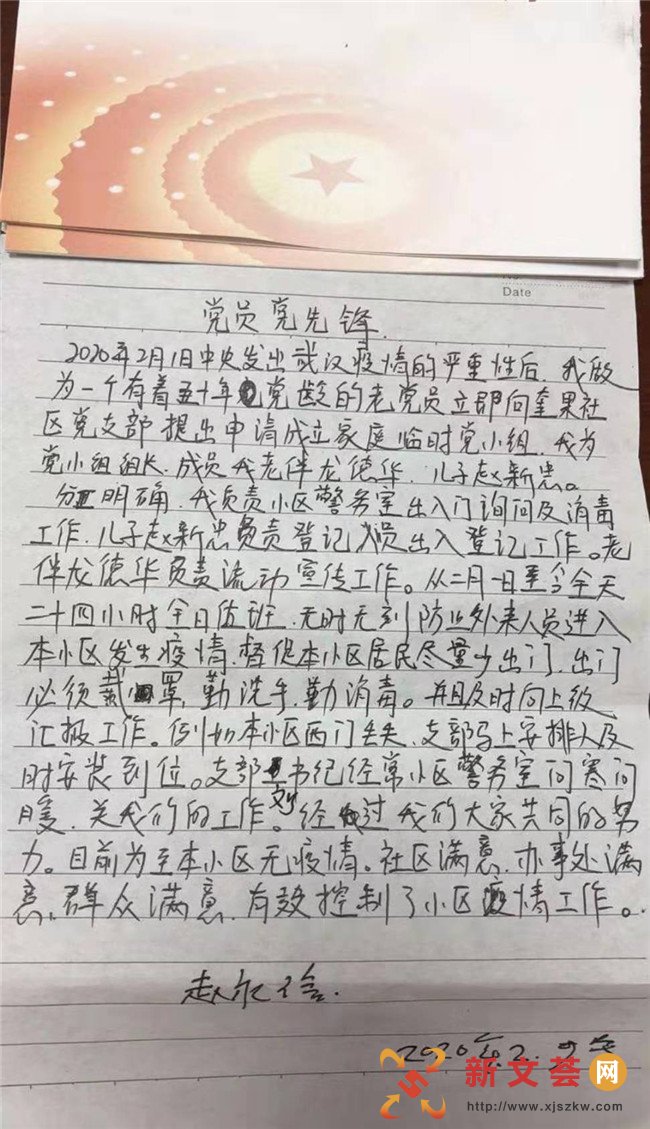 No
Date
党员党先锋.
2020年2月1日中央发出武汉疫情的严重性后 我做
为一个有着五十年党龄的老党员立即向奎果社
区党支部提出申请成立家庭临时党小组.我为
党小组组长.成员我老伴龙德华.儿子赵新忠。
分工明确.我负责小区警务室出入门询问及消毒
工作.儿子赵新忠负责登记人员出入登记工作。老
伴龙德华负责流动宣传工作。从二月一日至今全天
二十四小时全日值班.无时无刻防止外来人员进入
本小区发生疫情.督促本小区居民尽量少出门.出门
必须戴罩,勤洗手,勤消毒。并且及时向上级
汇报工作。例如本小区西门丢失.支部马上安排人及
时安装到位。支部书纪经常小区警务室问寒问
暖.关我们的工作。经过我们大家共同的努
力。目前为至本小区无疫情。社区满意.办事处满
意.群众满意.有效控制了小区疫情工作。
赵
2020年2.
新文荟网
http://www.xjszkw.com